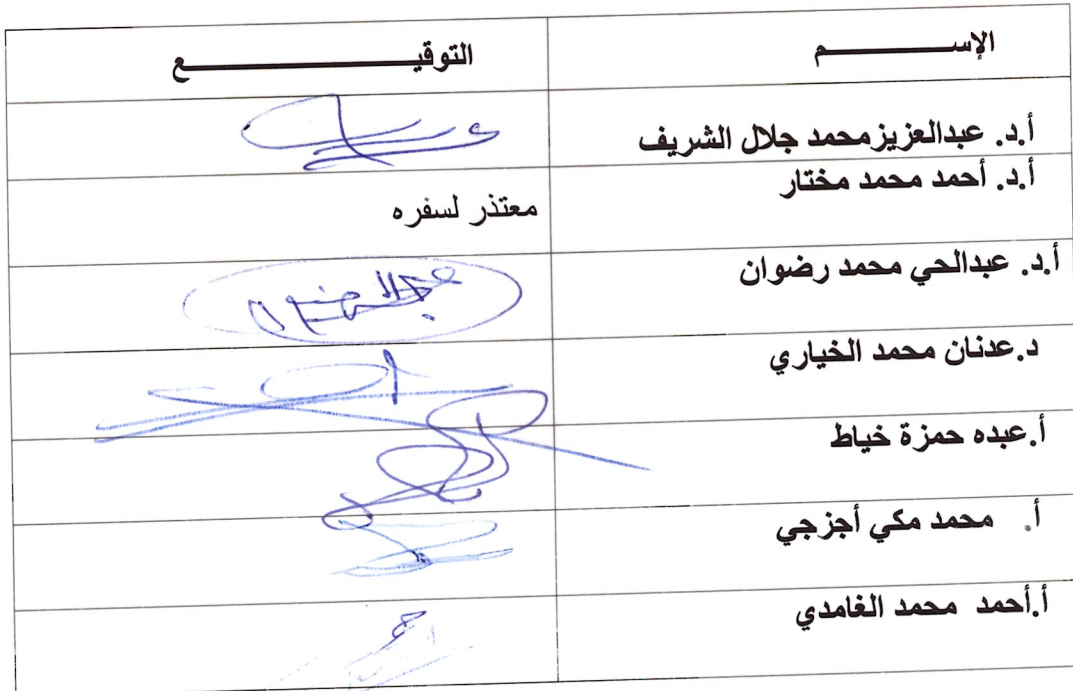 الإســـــــــم
التوقيـــــــــــــــع
أ.د. عبدالعزيزمحمد جلال الشريف
أ.د. أحمد محمد مختار
معتذر لسفره
أ.د. عبدالحي محمد رضوان
د.عدنان محمد الخياري
أ.عبده حمزة خياط
أ. محمد مكي أجزجي
أ.أحمد محمد الغامدي